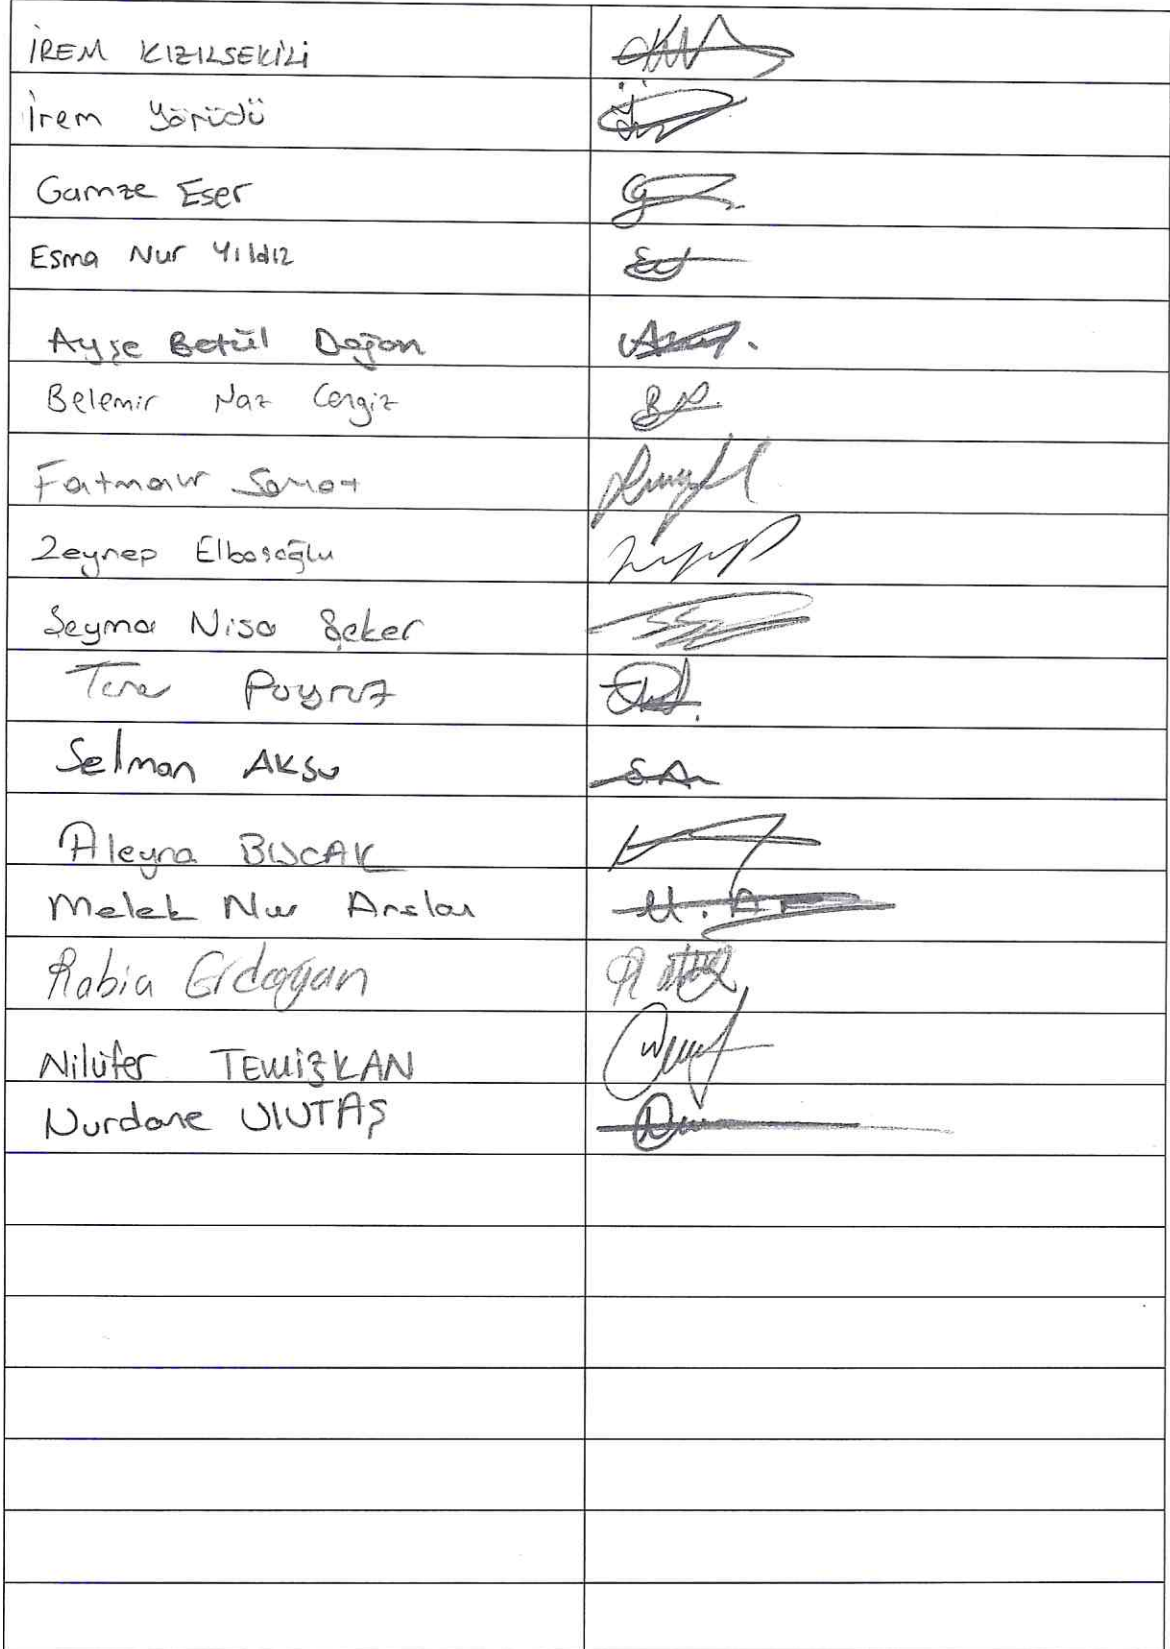 İREM KIZILSEKİLİ
İrem Yörüdü
Gamze Eser
Esma Nur Yıldız
Ayşe Betül Doğan
Belemir Naz Cengiz
Fatmanur Samat
Zeynep Elbasoğlu
Şeyma Nisa Şeker
Poyraz
Selman AKSU
Aleyna BUCAK
Melek Nur Arslan
Rabia Erdoğan
Nilüfer TEMİZKAN
Nurdane ULUTAŞ
S.A.